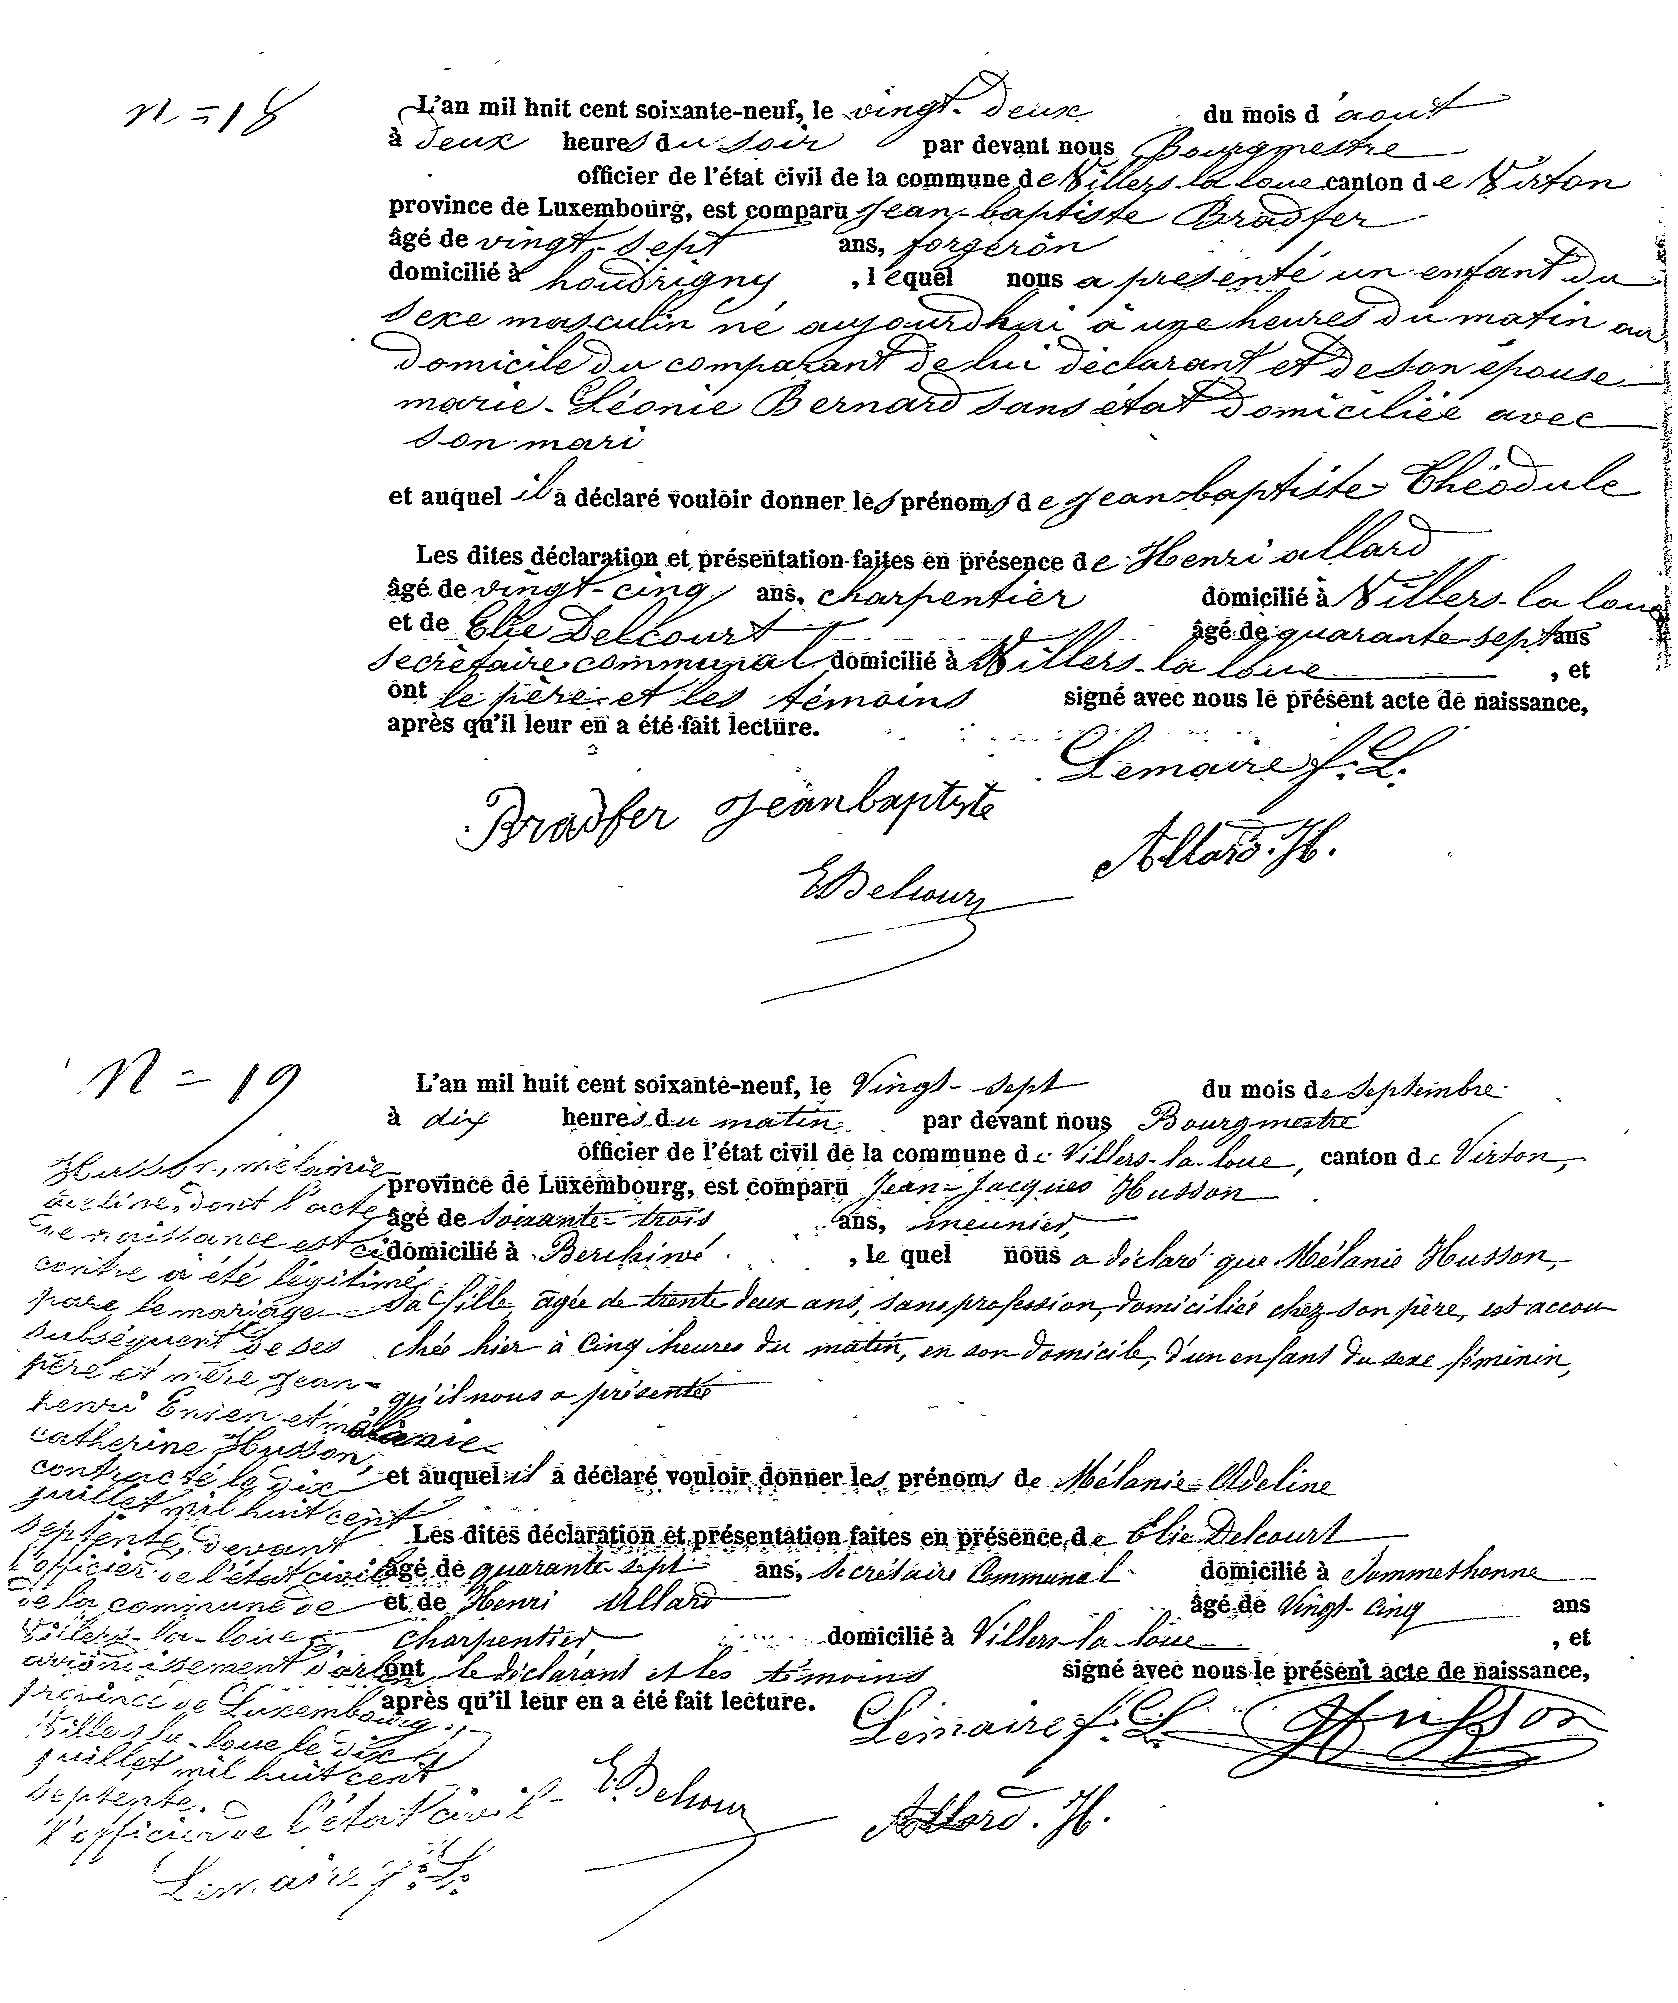 n=18
L'an mil huit cent soixante-neuf, le vingt-deux du mois d'aout
à deux heures du soir par devant nous Bourgmestre
officier de l'état civil de la commune de Villers-la-loue canton de Virton
province de Luxembourg, est comparu jean-baptiste Bradfer
âgé de vingt-sept ans, forgeron
domicilié à houdrigny , lequel nous a présenté un enfant du
sexe masculin né aujourdhui à une heures du matin au
domicile du comparant de lui déclarant et de son épouse
marie-Léonie Bernard sans état domiciliée avec
son mari
et auquel il a déclaré vouloir donner les prénoms de jean-baptiste-Théodule
Les dites déclaration et présentation faites en présence de Henri allard
âgé de vingt-cinq ans, charpentier domicilié à Villers-la loue
et de Elie Delcourt âgé de quarante-sept ans
secrétaire communal domicilié à Villers-la loue , et
ont le père et les témoins signé avec nous le présent acte de naissance,
après qu'il leur en a été fait lecture.
Lemaire f. L.
Bradfer jean baptiste
Allard. H.
E Delcour
N=19
L'an mil huit cent soixante-neuf, le Vingt-sept du mois de Septembre
à dix heures du matin par devant nous Bourgmestre
officier de l'état civil de la commune de Villers-la-loue, canton de Virton,
province de Luxembourg, est comparu Jean-Jacques Husson
âgé de soixante-trois ans, meunier,
domicilié à Berchiwé , le quel nous a déclaré que Mélanie Husson,
sa fille, agée de trente deux ans, sans profession, domiciliée chez son père, est accou
chée hier à cinq heures du matin, en son domicile, d'un enfant du sexe féminin,
qu'il nous a présentée
et auquel il a déclaré vouloir donner les prénoms de Mélanie-Adeline
Les dites déclaration et présentation faites en présence de Elie Delcourt
âgé de quarante-sept ans, secrétaire Communal domicilié à Sommethonne
et de Henri Allard âgé de Vingt-cinq ans
charpentier, domicilié à Villers-la-loue , et
ont le déclarant et les témoins signé avec nous le présent acte de naissance,
après qu'il leur en a été fait lecture.
Lemaire f. L. Husson
E. Delcour
Allard. H.
Husson, mélanie
adeline, dont l'acte
de naissance est ci
contre à été légitimée
pare le mariage
subséquent de ses
père et mère jean-
henri Ensen et mélanie-
catherine Husson,
contracté le dix
juillet mil huit cent
septente, devant
l'officier de l'état civil
de la commune de
Villers-la-loue
arrondissement d'arlon
province de Luxembourg.,
Villers la-loue le dix
juillet mil huit cent
septente.
l'officier de l'état civil
Lemaire f. L.